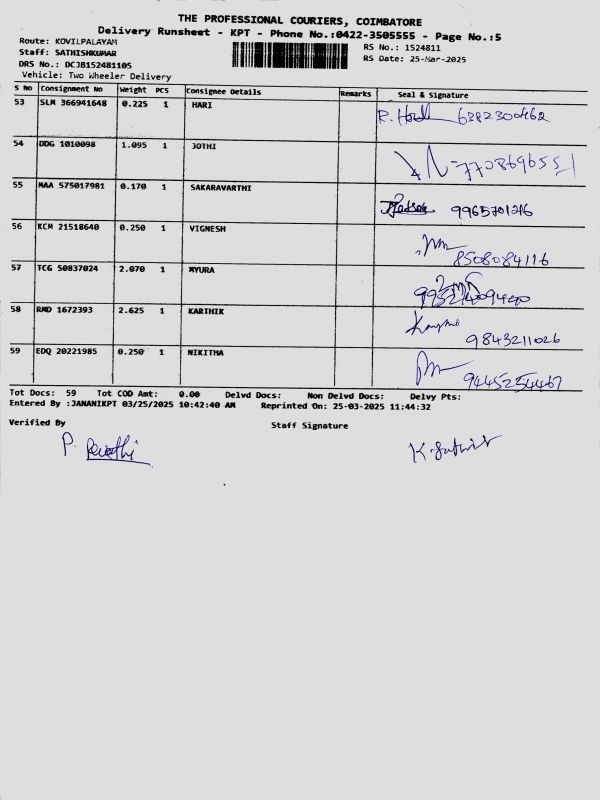 THE PROFESSIONAL COURIERS, COIMBATORE
Delivery Runsheet - KPT - Phone No.:0422-3505555 - Page No.:5
Route: KOVILPALAYAM
RS No.: 1524811
Staff: SATHISHKUMAR
RS Date: 25-Mar-2025
DRS No.: DCJB152481105
Vehicle: Two Wheeler Delivery
S No Consignment No Weight PCS Consignee Details Remarks Seal & Signature
53 SLM 366941648 0.225 1 HARI R. Hari 6382300462
54 DDG 1010098 1.095 1 JOTHI 7708696551
55 MAA 575017981 0.170 1 SAKARAVARTHI 9965701216
56 KCM 21518640 0.250 1 VIGNESH 8508084116
57 TCG 50837024 2.070 1 MYURA
58 RMD 1672393 2.625 1 KARTHIK 9843211026
59 EDQ 20221985 0.250 1 NIKITHA 9445254467
Tot Docs: 59 Tot COD Amt: 0.00 Delvd Docs: Non Delvd Docs: Delvy Pts:
Entered By :JANANIKPT 03/25/2025 10:42:40 AM Reprinted On: 25-03-2025 11:44:32
Verified By
Staff Signature
P. Revathi
K. Sathish